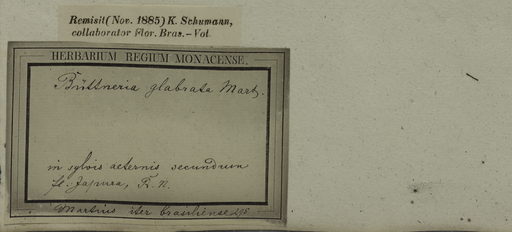 Remisit (Nov. 1885) K. Schumann,
collaborator Flor. Bras. - Vol.
HERBARIUM REGIUM MONACENSE.
Büttneria glabrata Mart.
in sylvis aeternis secundum
fl. Japura, R. N.
Martius iter brasiliense